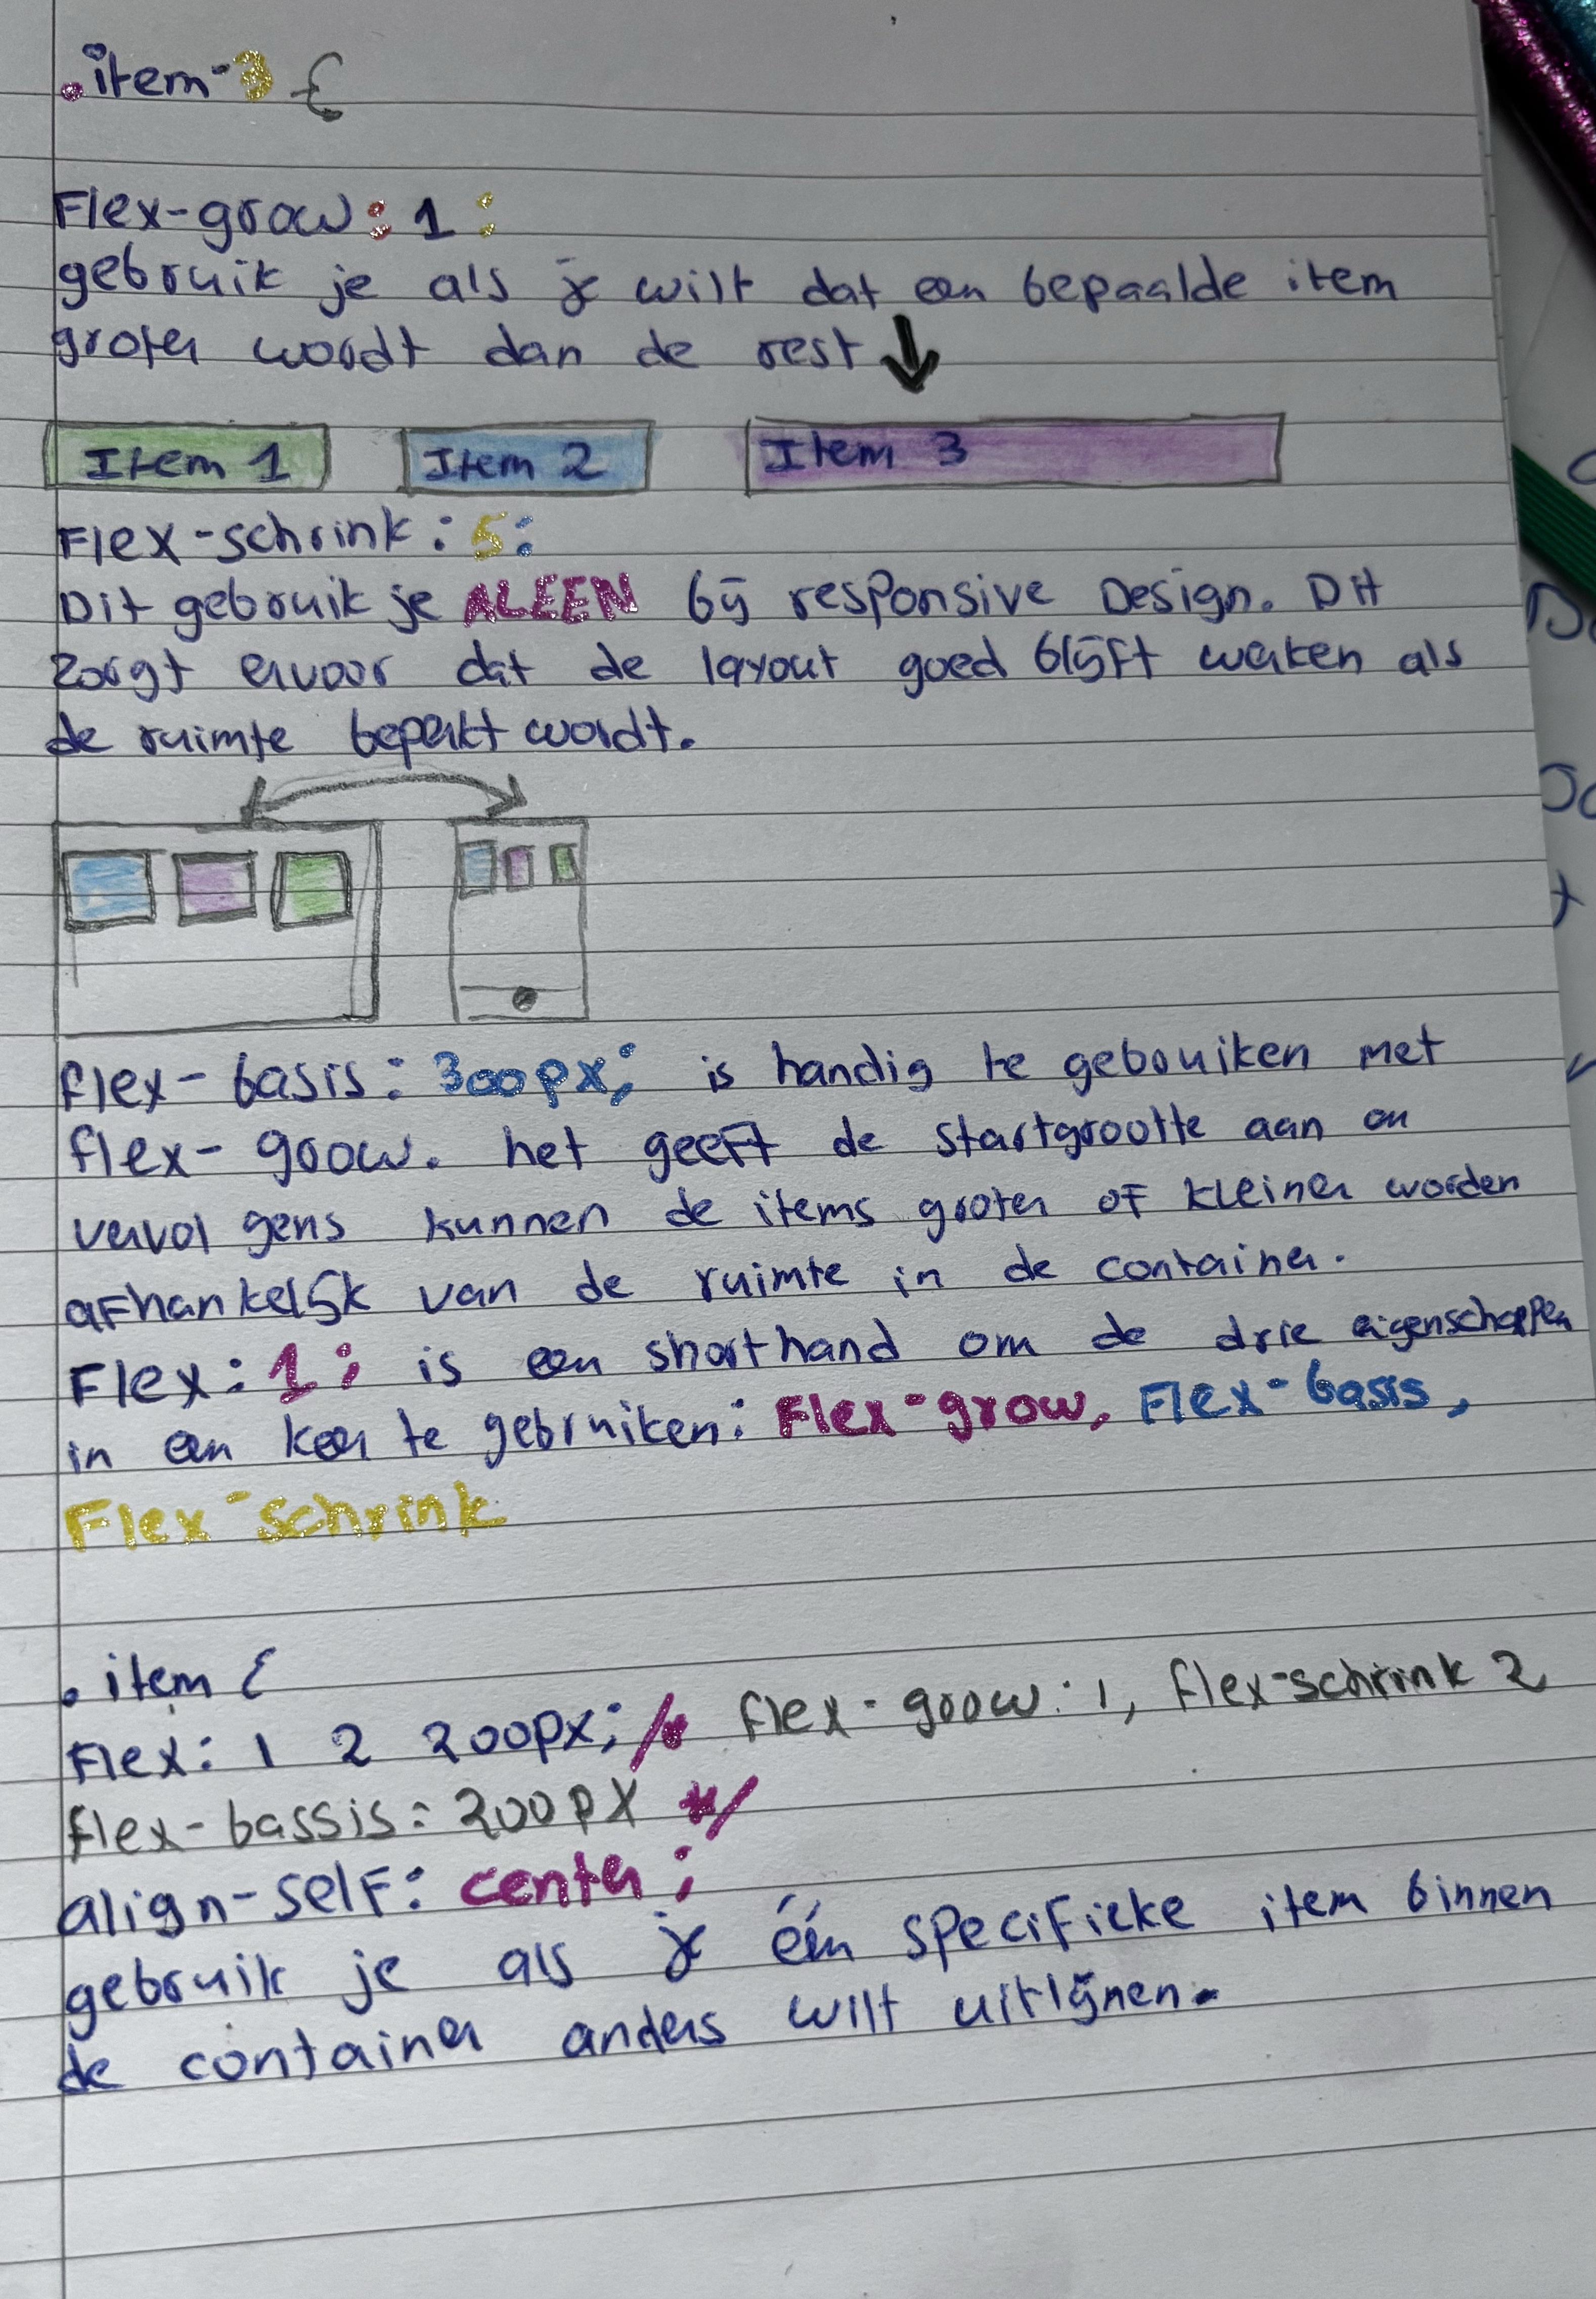 .item-3 {
Flex-grow: 1:
gebruik je als je wilt dat een bepaalde item
groter wordt dan de rest
Item 1 Item 2 Item 3
Flex-schrink: 5:
Dit gebruik je ALEEN bij responsive Design. Dit
zorgt ervoor dat de layout goed blijft werken als
de ruimte beperkt wordt.
flex-basis: 300px; is handig te gebruiken met
flex-grow. het geeft de startgrootte aan en
vervolgens kunnen de items groter of kleiner worden
afhankelijk van de ruimte in de container.
Flex: 1; is een shorthand om de drie eigenschappen
in een keer te gebruiken: Flex-grow, Flex-basis,
Flex-schrink
.item {
Flex: 1 2 200px; /* flex-grow: 1, flex-schrink 2
flex-bassis: 200px */
align-self: center;
gebruik je als je één specifieke item binnen
de container anders wilt uitlijnen.